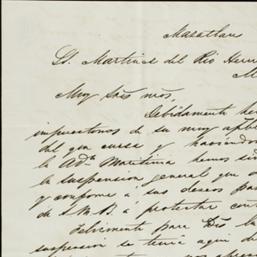 Mazatlan
Martinez del Rio Herm
Muy Sres nros,
Debidamente he
impuestonos de su muy aptbl
del que cursa y haciéndo
la Adna Maritima hemos sid
la suspension general que d
y conforme a sus deseos pa
de S.M.B. á protestar cont
Felizmente para Dro la
suspension se tenia aqui d